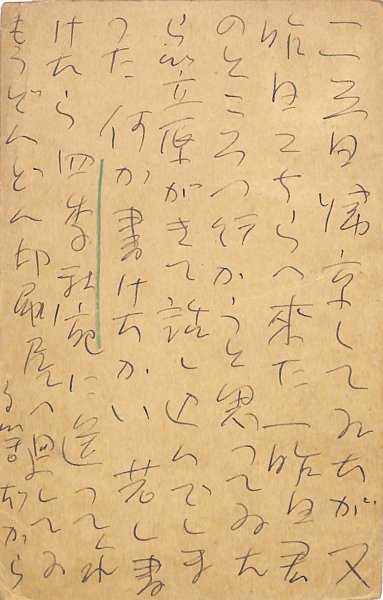 二三日帰京してゐたが又
昨日こちらへ来た 一昨日君
のところへ行かうと思つてゐた
ら立原がきて話し込んでしま
つた 何か書けたかい 若し書
けたら四季社宛に送つて
もうどんどん印刷屋へ廻してゐ
から